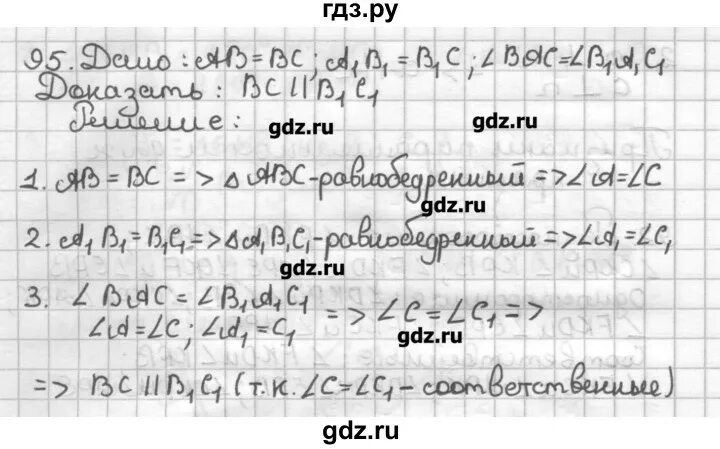 гдз.ру
95. Дано: AB = BC; A₁B₁ = B₁C; ∠BAC = ∠B₁A₁C₁
Доказать: BC || B₁C₁
Решение:
gdz.ru
gdz.ru
1. AB = BC => △ABC-равнобедренный => ∠A = ∠C
gdz.ru
2. A₁B₁ = B₁C₁ => △A₁B₁C₁-равнобедренный => ∠A₁ = ∠C₁
gdz.ru
3. ∠BAC = ∠B₁A₁C₁
∠A = ∠C; ∠A₁ = C₁ => ∠C = ∠C₁ =>
gdz.ru
=> BC || B₁C₁ (т.к. ∠C = ∠C₁ - соответственные)
gdz.ru